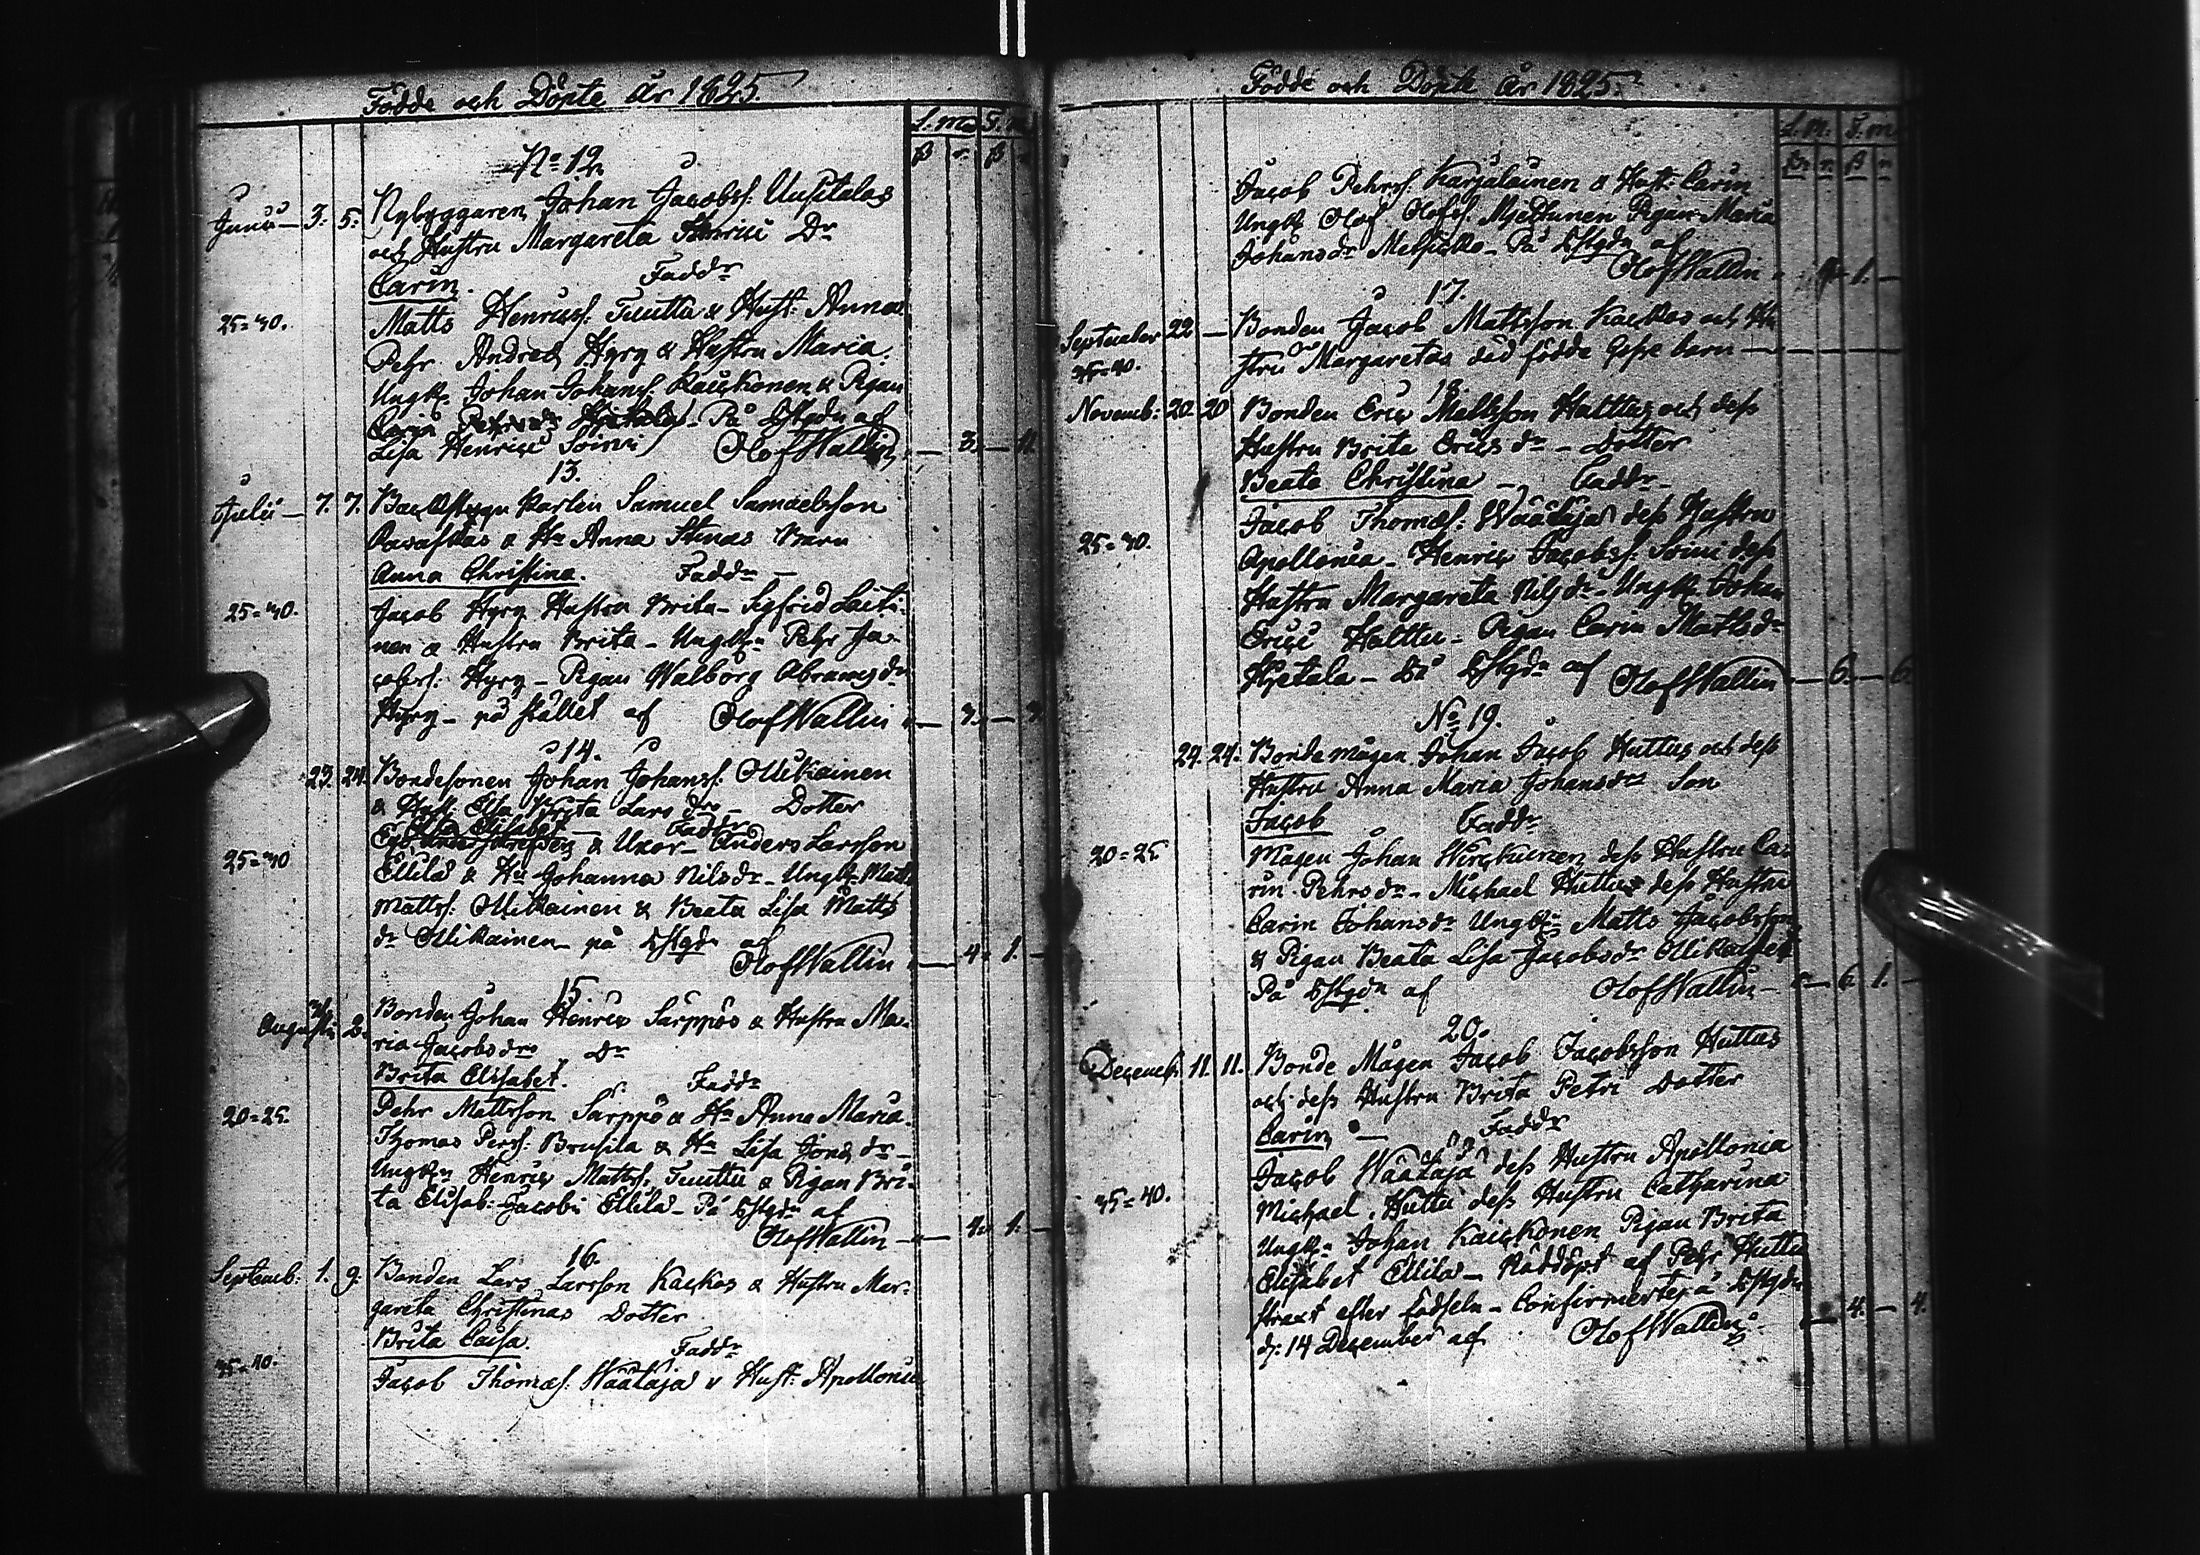 Födde och Döpte år 1825.
S. m. T. m.
No 12
Junii – 3. 5. Nybyggaren Johan Jacobss. Uusitalos
och Hustru Margareta Henrici Dr
Carin. Faddr
25-30. Matts Henricss. Tuuttu & Hust: Anna
Pehr Andreæ Hyry & Hustru Maria.
Ungk. Johan Johanss. Kaickonen & Pigan
Lisa Henrici Soini På Esstgdn af
Olof Wallin – 3. –
13.
Julii – 7. 7. Karlen Samuel Samuelsson
& Hu Anna Stinas Barn
Anna Christina. Faddr –
25-30. Jacob Hyry Hustru Brita – Sigfrid Laiti-
nen & Hustru Brita – Ungkn Pehr Ja-
cobss. Hyry – Pigan Walborg Abramsdr
Hyry – på stället af Olof Wallin – 3. – 3
14.
23. 24. Bondesonen Johan Johanss. Ollikainen
& Hust. Elsa Brita Lars drs – Dotter
Elsa Elisabet Faddr
25-30 & Uxor – Anders Larsson
Ellilä & Hu Johanna Nilsdr – Ungk. Matts
Mattss. Ollikainen & Beata Lisa Matts
dr Ollikainen – på Esstgdn af
Olof Wallin – 4. 1. –
15
Augusti 2. Bonden Johan Henric Särppös & Hustru Ma-
ria Jacobsdrs Dr
Brita Elisabet. Faddr
20-25. Pehr Mattsson Särppö & Hu Anna Maria.
Thomas Perss. Brusila & Hu Lisa Jons dr –
Ungkn Henric Mattss. Tuuttu & Pigan Bri-
ta Elisab: Jacobi Ellilä – På Esstgdn af
Olof Wallin – 4. 1. –
16.
Septemb: 1. 9. Bonden Lars Larsson Kackos & Hustru Mar-
gareta Christinas Dotter
Brita Caisa. Faddr
35-40. Jacob Thomæs. Wäätäjä & Hust: Apollonia
Födde och Döpte år 1825.
S. m. T. m.
Jacob Pehrss. Karjalainen & Hust: Carin
Ungk. Olof Olofss. Pigan Maria
Johansdr – På Esstgdn af
Olof Wallin – 1. –
17.
September 22 – Bonden Jacob Mattsson Kackos och Hu
35-40. stru Margaretas död födde barn –
18.
Novemb: 20. 20 Bonden Eric Mattsson Halttus och dess
Hustru Brita Erics dr – Dotter
Beata Christina – Faddr –
Jacob Thomæs: Wäätäjä dess Hustru
25-30. Apollonia – Henric Jacobss. Soini dess
Hustru Margareta Nils dr – Ungk. Johan
Erici Halttu – Pigan Carin Matts dr
Hietala – På Esstgdn af Olof Wallin – 6. – 6.
No 19.
24. 24. Bondemågen Johan Jacob Huttus och dess
Hustru Anna Maria Johansdrs Son
Jacob Faddr
20-25 Mågen Johan dess Hustru Ca-
rin Pehrsdr – Michael Huttu dess Hustru
Carin Johansdr Ungkn Matts Jacobsson
& Pigan Beata Lisa Jacobsdr Ollikainen
På Esstgdn af Olof Wallin – 6 1. –
20.
Decemb. 11. 11. Bonde Mågen Jacob Jacobsson Huttus
och dess Hustru Brita Petri Dotter
Carin – Faddr
Jacob Wäätäjä dess Hustru Apollonia
35-40. Michael Huttu dess Hustru Catharina
Ungkn Johan Kaickonen Pigan Brita
Elisabet Ellilä – Nöddöpt af Pehr Huttu
strax efter födseln – Confirmertes å Esstgdn
d: 14 December af Olof Wallin – 4. – 4.